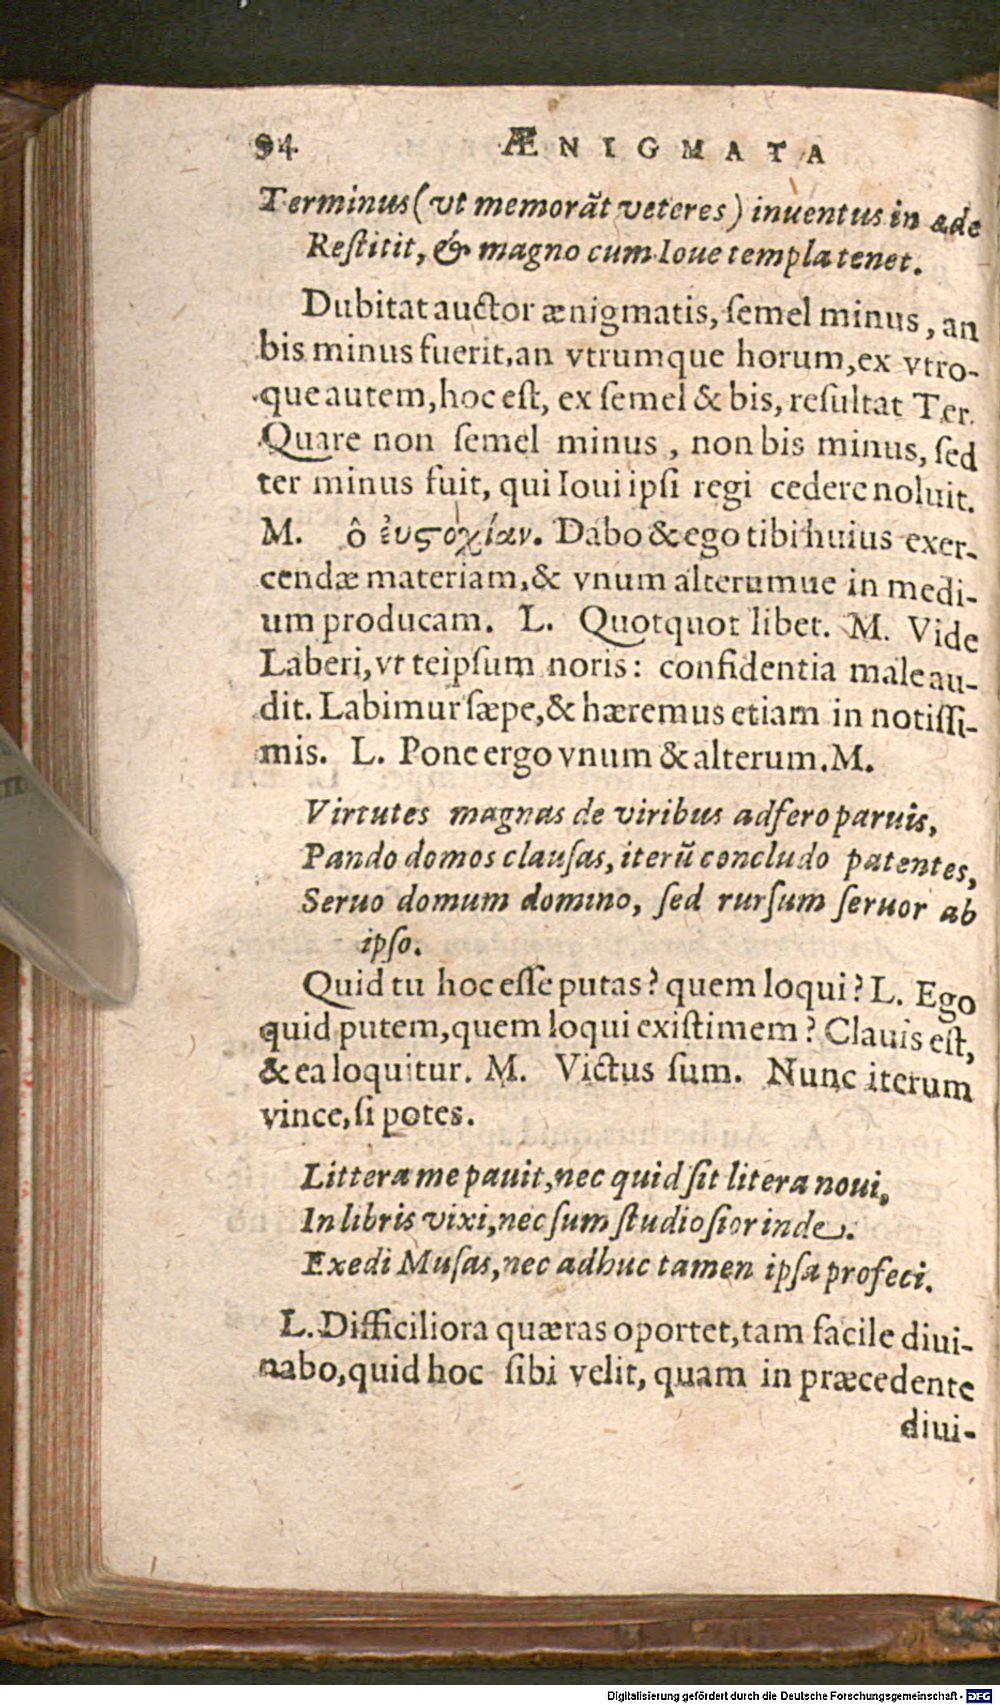 94 ÆNIGMATA
Terminus (vt memorāt veteres) inuentus in æde
Reſtitit, & magno cum Ioue templa tenet.
Dubitat auctor ænigmatis, ſemel minus, an
bis minus fuerit, an vtrumque horum, ex vtro-
que autem, hoc eſt, ex ſemel & bis, reſultat Ter.
Quare non ſemel minus, non bis minus, ſed
ter minus fuit, qui Ioui ipſi regi cedere noluit.
M. ô ἐυςοχίαν. Dabo & ego tibi huius exer-
cendæ materiam, & vnum alterumue in medi-
um producam. L. Quotquot libet. M. Vide
Laberi, vt teipſum noris: confidentia male au-
dit. Labimur ſæpe, & hæremus etiam in notiſſi-
mis. L. Pone ergo vnum & alterum. M.
Virtutes magnas de viribus adfero paruis,
Pando domos clauſas, iterū concludo patentes,
Seruo domum domino, ſed rurſum ſeruor ab
ipſo.
Quid tu hoc eſſe putas? quem loqui? L. Ego
quid putem, quem loqui exiſtimem? Clauis eſt,
& ea loquitur. M. Victus ſum. Nunc iterum
vince, ſi potes.
Littera me pauit, nec quid ſit litera noui,
In libris vixi, nec ſum ſtudioſior inde.
Exedi Muſas, nec adhuc tamen ipſa profeci.
L. Difficiliora quæras oportet, tam facile diui-
nabo, quid hoc ſibi velit, quam in præcedente
diui-
Digitalisierung gefördert durch die Deutsche Forschungsgemeinschaft - DFG